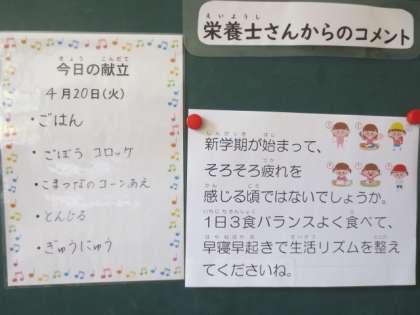 今日の献立
4月20日(火)
・ごはん
・ごぼう コロッケ
・こまつなのコーンあえ
・とんじる
・ぎゅうにゅう
栄養士さんからのコメント
新学期が始まって、
そろそろ疲れを
感じる頃ではないでしょうか。
1日3食バランスよく食べて、
早寝早起きで生活リズムを整え
てくださいね。